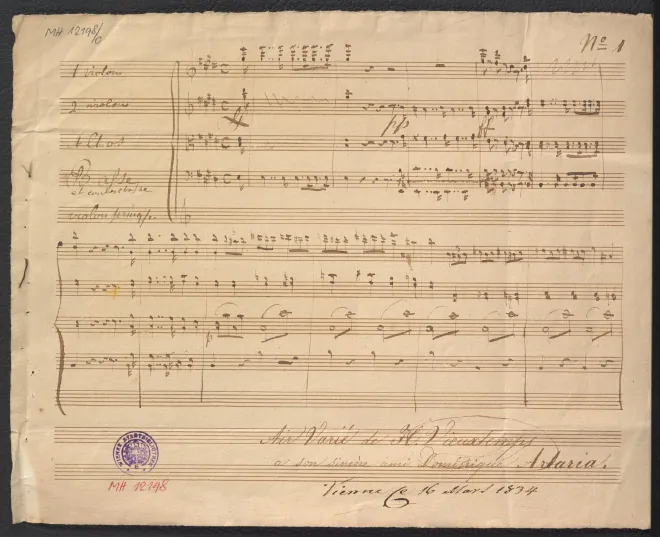 MH 12198/c
Nº 1
1 violon
2 violon
Basse
et contrebasse
violon principe
pp
ff
p
Air Varié de H. Vieuxtemps
a son sincère ami Domenique Artaria.
Vienne le 16 Mars 1834
MH 12198